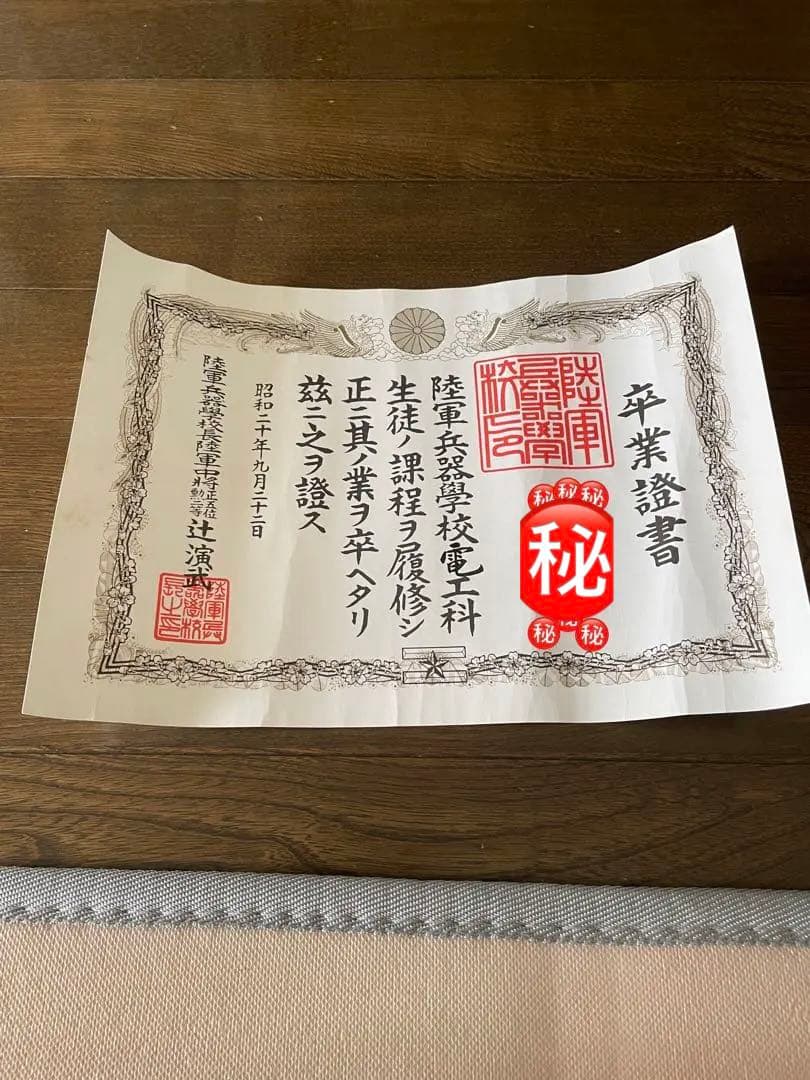 卒業證書
陸軍兵器學校印
秘
秘
秘
秘
秘
秘
秘
陸軍兵器學校電工科
生徒ノ課程ヲ履修シ
正ニ其ノ業ヲ卒ヘタリ
玆ニ之ヲ證ス
昭和二十年九月二十二日
陸軍兵器學校長陸軍中將正五位勳二等辻演武